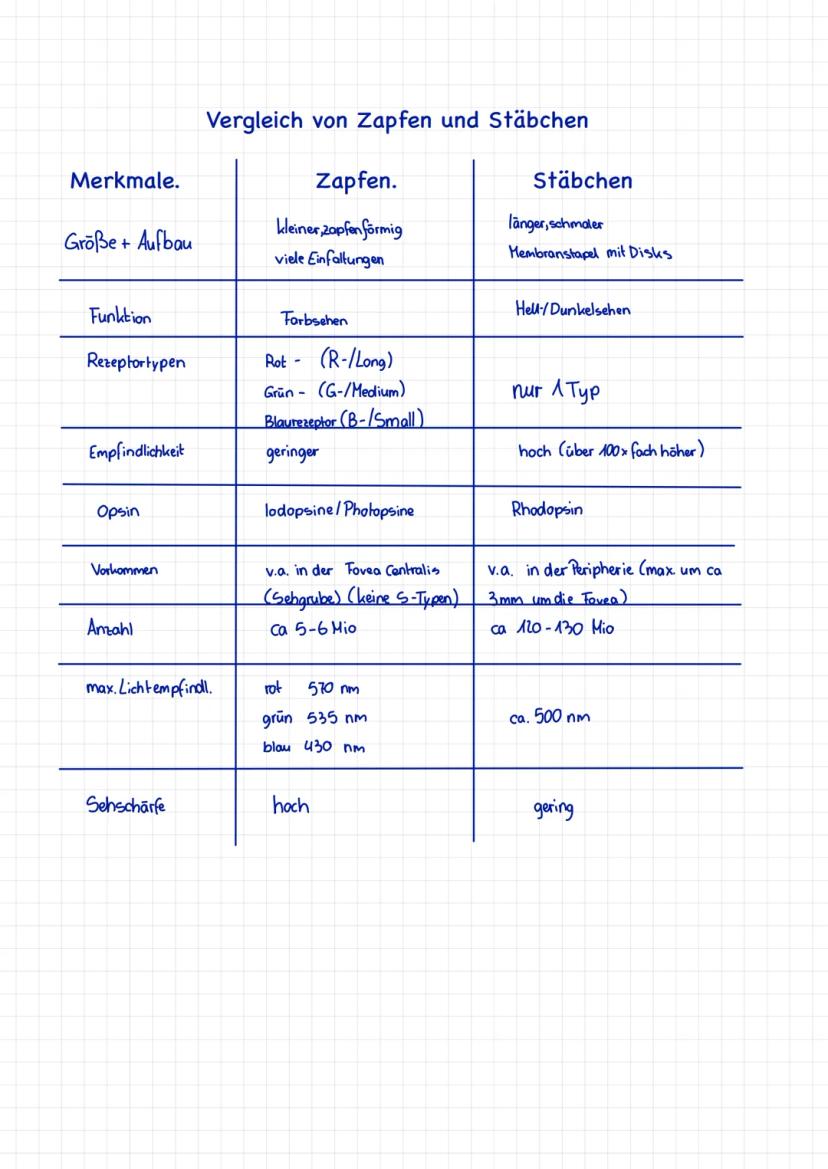 Vergleich von Zapfen und Stäbchen
Merkmale. Zapfen. Stäbchen
Größe + Aufbau
kleiner, zapfenförmig
viele Einfaltungen
länger, schmaler
Membranstapel mit Disks
Funktion Farbsehen Hell-/Dunkelsehen
Rezeptortypen
Rot - (R-/Long)
Grün - (G-/Medium)
Blaurezeptor (B-/Small)
nur 1 Typ
Empfindlichkeit geringer hoch (über 100x fach höher)
Opsin Iodopsine/Photopsine Rhodopsin
Vorkommen
v.a. in der Fovea Centralis
(Sehgrube) (keine S-Typen)
v.a. in der Peripherie (max. um ca
3mm um die Fovea)
Anzahl ca 5-6 Mio ca 120-130 Mio
max. Lichtempfindl.
rot 570 nm
grün 535 nm
blau 430 nm
ca. 500 nm
Sehschärfe hoch gering